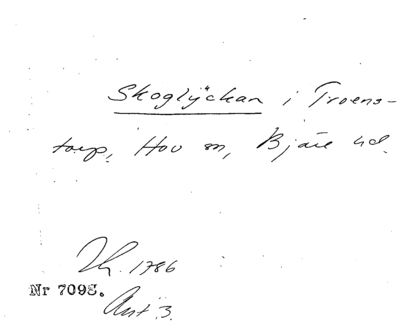 Skoglyckan i Troens-
torp, Hov sn, Bjäre hd.
1786
Nr 7098.
Ant 3.